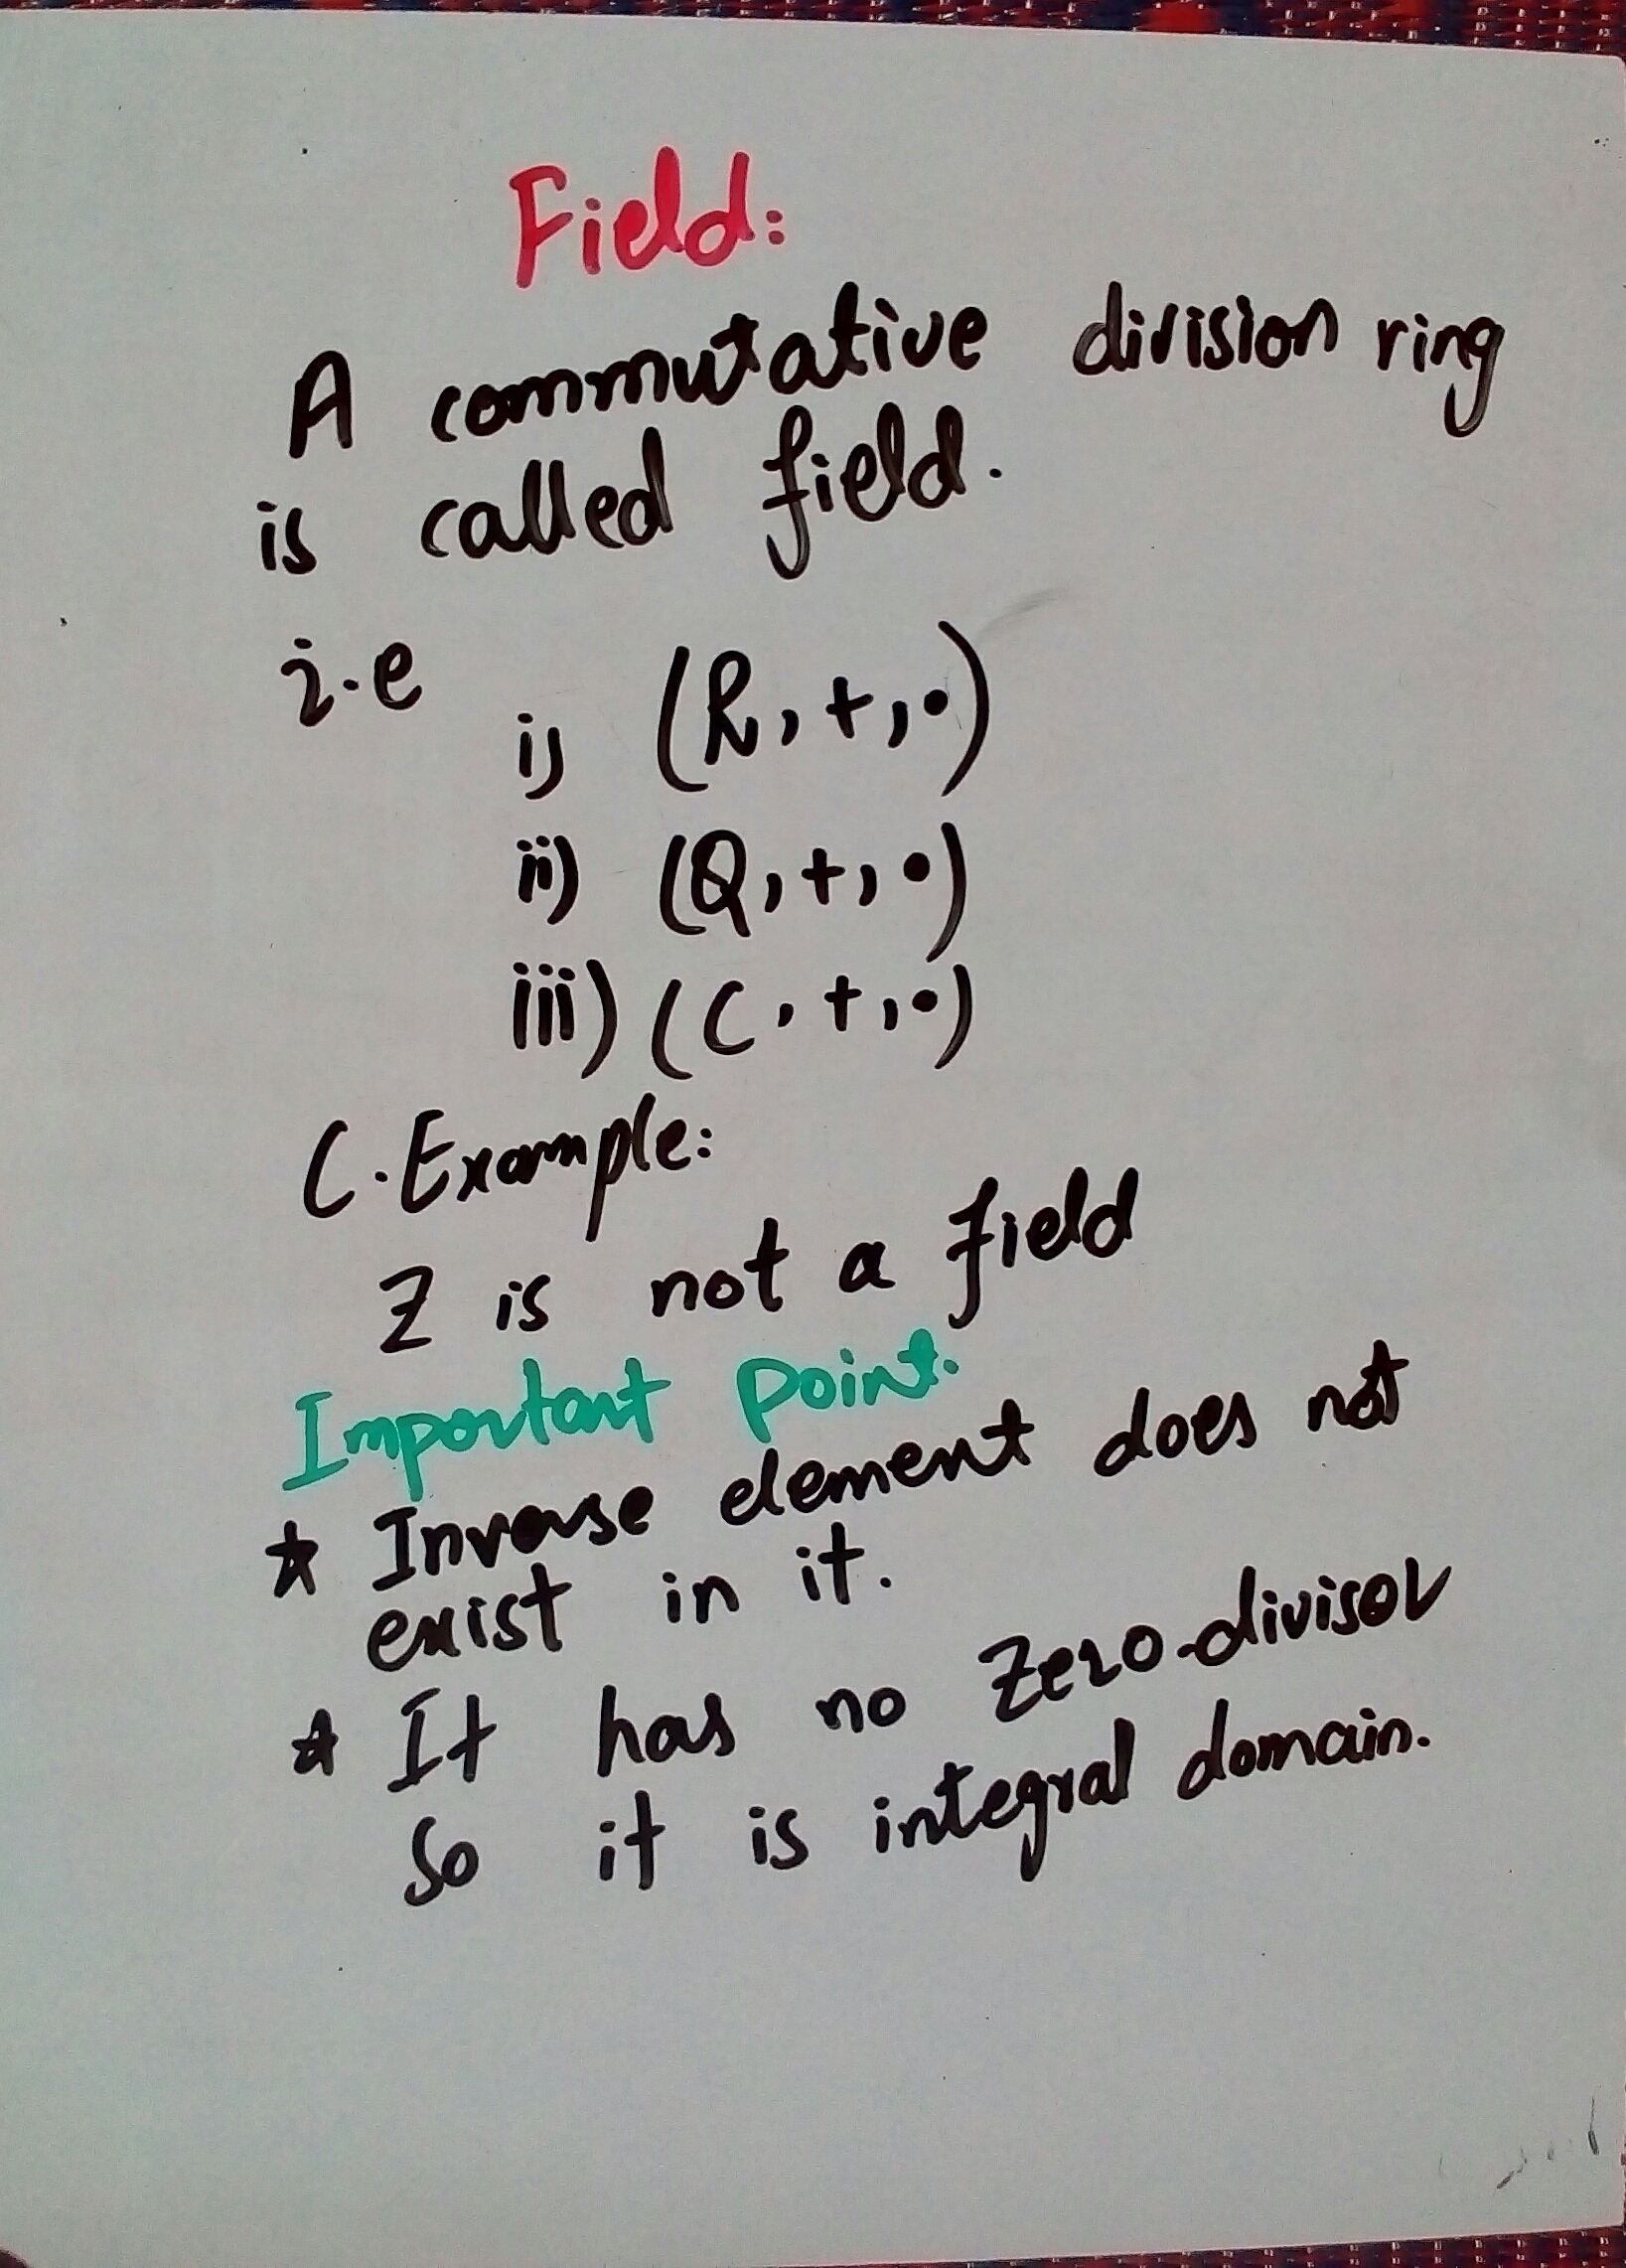 Field:
A commutative division ring
is called field.
i.e
i) (R, +, •)
ii) (Q, +, •)
iii) (C, +, •)
C.Example:
Z is not a field
Important point.
* Inverse element does not
exist in it.
* It has no Zero-divisor
So it is integral domain.